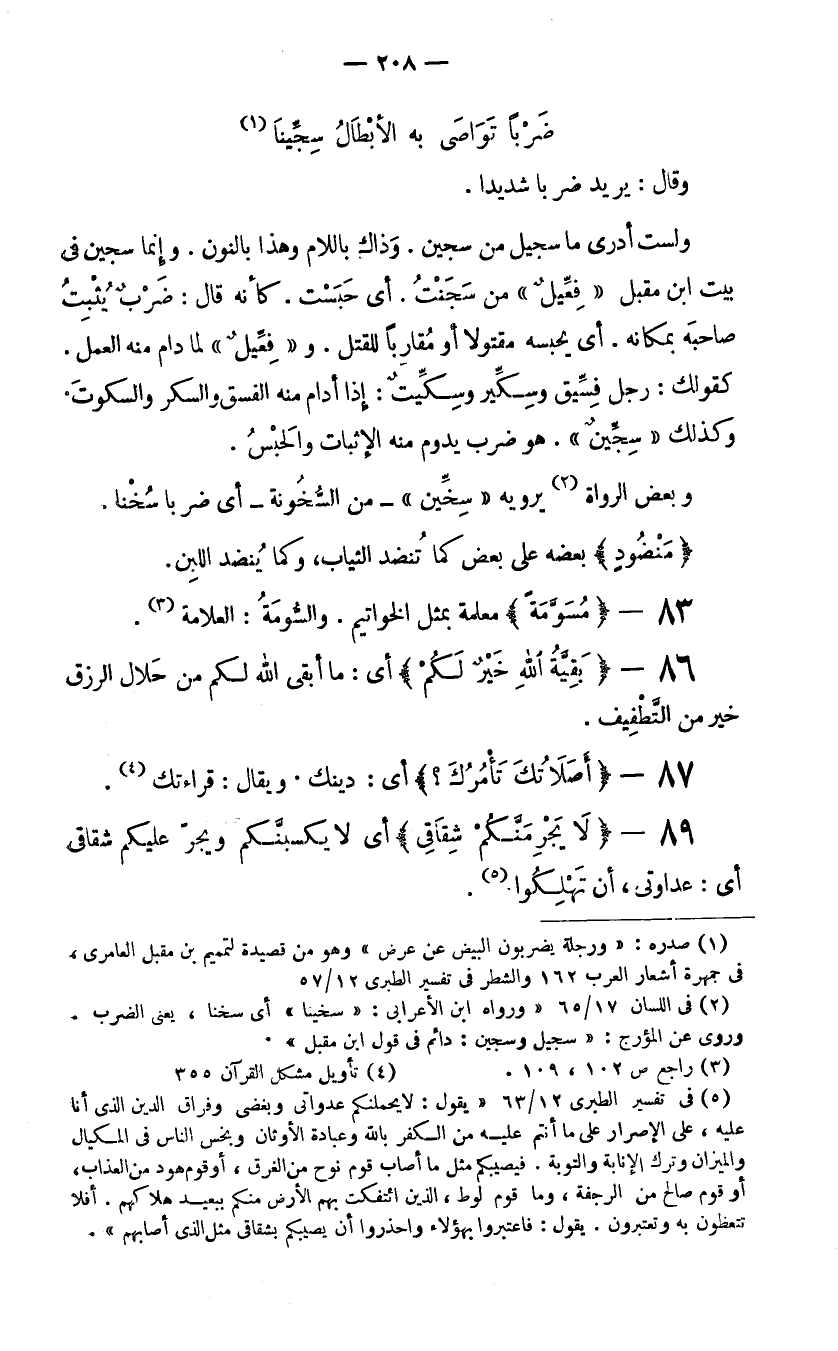 — ٢٠٨ —
ضَرْباً تَوَاصَى به الأبْطَالُ سِجِّينَا (١)
وقال : يريد ضربا شديدا .
ولست أدرى ما سجيل من سجين . وَذَاك باللام وهذا بالنون . وإنما سجين فى
بيت ابن مقبل « فِعِّيلٌ » من سَجَنْتُ . أى حَبَسْت . كأنه قال : ضَرْبٌ يُثْبِتُ
صاحبَه بمكانه . أى يحبسه مقتولا أو مُقارِباً للقتل . و « فِعِّيلٌ » لما دام منه العمل .
كقولك : رجل فِسِّيق وسِكِّير وسِكِّيتٌ : إذا أدام منه الفسق والسكر والسكوتَ .
وكذلك « سِجِّينٌ » . هو ضرب يدوم منه الإثبات والحَبْسُ .
وبعض الرواة (٢) يرويه « سِخِّين » ــ من السُّخُونة ــ أى ضربا سُخْنا .
﴿ مَنْضُودٍ ﴾ بعضه على بعض كما تُنضد الثياب، وكما يُنضد اللبِن .
٨٣ — ﴿ مُسَوَّمَةً ﴾ معلمة بمثل الخواتيم . والسُّومَةُ : العلامة (٣) .
٨٦ — ﴿ بَقِيَّةُ ٱللهِ خَيْرٌ لَكُمْ ﴾ أى : ما أبقى الله لكم من حَلال الرزق
خير من التَّطْفِيف .
٨٧ — ﴿ أَصَلَاتُكَ تَأْمُرُكَ ؟ ﴾ أى : دينك . ويقال : قراءتك (٤) .
٨٩ — ﴿ لَا يَجْرِمَنَّكُمْ شِقَاقِي ﴾ أى لا يكسبنَّكم ويجرّ عليكم شقاقى
أى : عداوتى ، أن تَهْلِكُوا (٥) .
(١) صدره : « ورجلة يضربون البيض عن عرض » وهو من قصيدة لتميم بن مقبل العامرى ،
فى جمهرة أشعار العرب ١٦٢ والشطر فى تفسير الطبرى ٥٧/١٢
(٢) فى اللسان ٦٥/١٧ « ورواه ابن الأعرابى : « سخينا » أى سخنا ، يعنى الضرب .
وروى عن المؤرج : « سجيل وسجين : دائم فى قول ابن مقبل » .
(٣) راجع ص ١٠٢ ، ١٠٩ . (٤) تأويل مشكل القرآن ٣٥٥
(٥) فى تفسير الطبرى ٦٣/١٢ « يقول : لايحملنكم عدواتى وبغضى وفراق الدين الذى أنا
عليه ، على الإصرار على ما أنتم عليه من الكفر بالله وعبادة الأوثان وبخس الناس فى المكيال
والميزان وترك الإنابة والتوبة . فيصيبكم مثل ما أصاب قوم نوح من الغرق ، أوقوم هود من العذاب،
أو قوم صالح من الرجفة ، وما قوم لوط ، الذين ائتفكت بهم الأرض منكم ببعيد هلاكهم . أفلا
تتعظون به وتعتبرون . يقول : فاعتبروا بهؤلاء واحذروا أن يصيبكم بشقاقى مثل الذى أصابهم » .